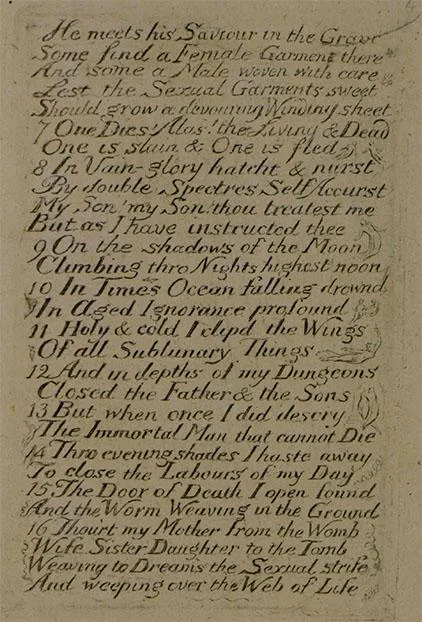 He meets his Saviour in the Grave
Some find a Female Garment there
And some a Male woven with care
Lest the Sexual Garments sweet
Should grow a devouring Winding sheet
7 One Dies! Alas! the Living & Dead
One is slain & One is fled
8 In Vain-glory hatcht & nurst
By double Spectres Self Accurst
My Son! my Son! thou treatest me
But as I have instructed thee
9 On the shadows of the Moon
Climbing thro Nights highest noon
10 In Times Ocean falling drownd
In Aged Ignorance profound
11 Holy & cold I clipd the Wings
Of all Sublunary Things
12 And in depths of my Dungeons
Closed the Father & the Sons
13 But when once I did descry
The Immortal Man that cannot Die
14 Thro evening shades I haste away
To close the Labours of my Day
15 The Door of Death I open found
And the Worm Weaving in the Ground
16 Thou'rt my Mother from the Womb
Wife Sister Daughter to the Tomb
Weaving to Dreams the Sexual strife
And weeping over the Web of Life